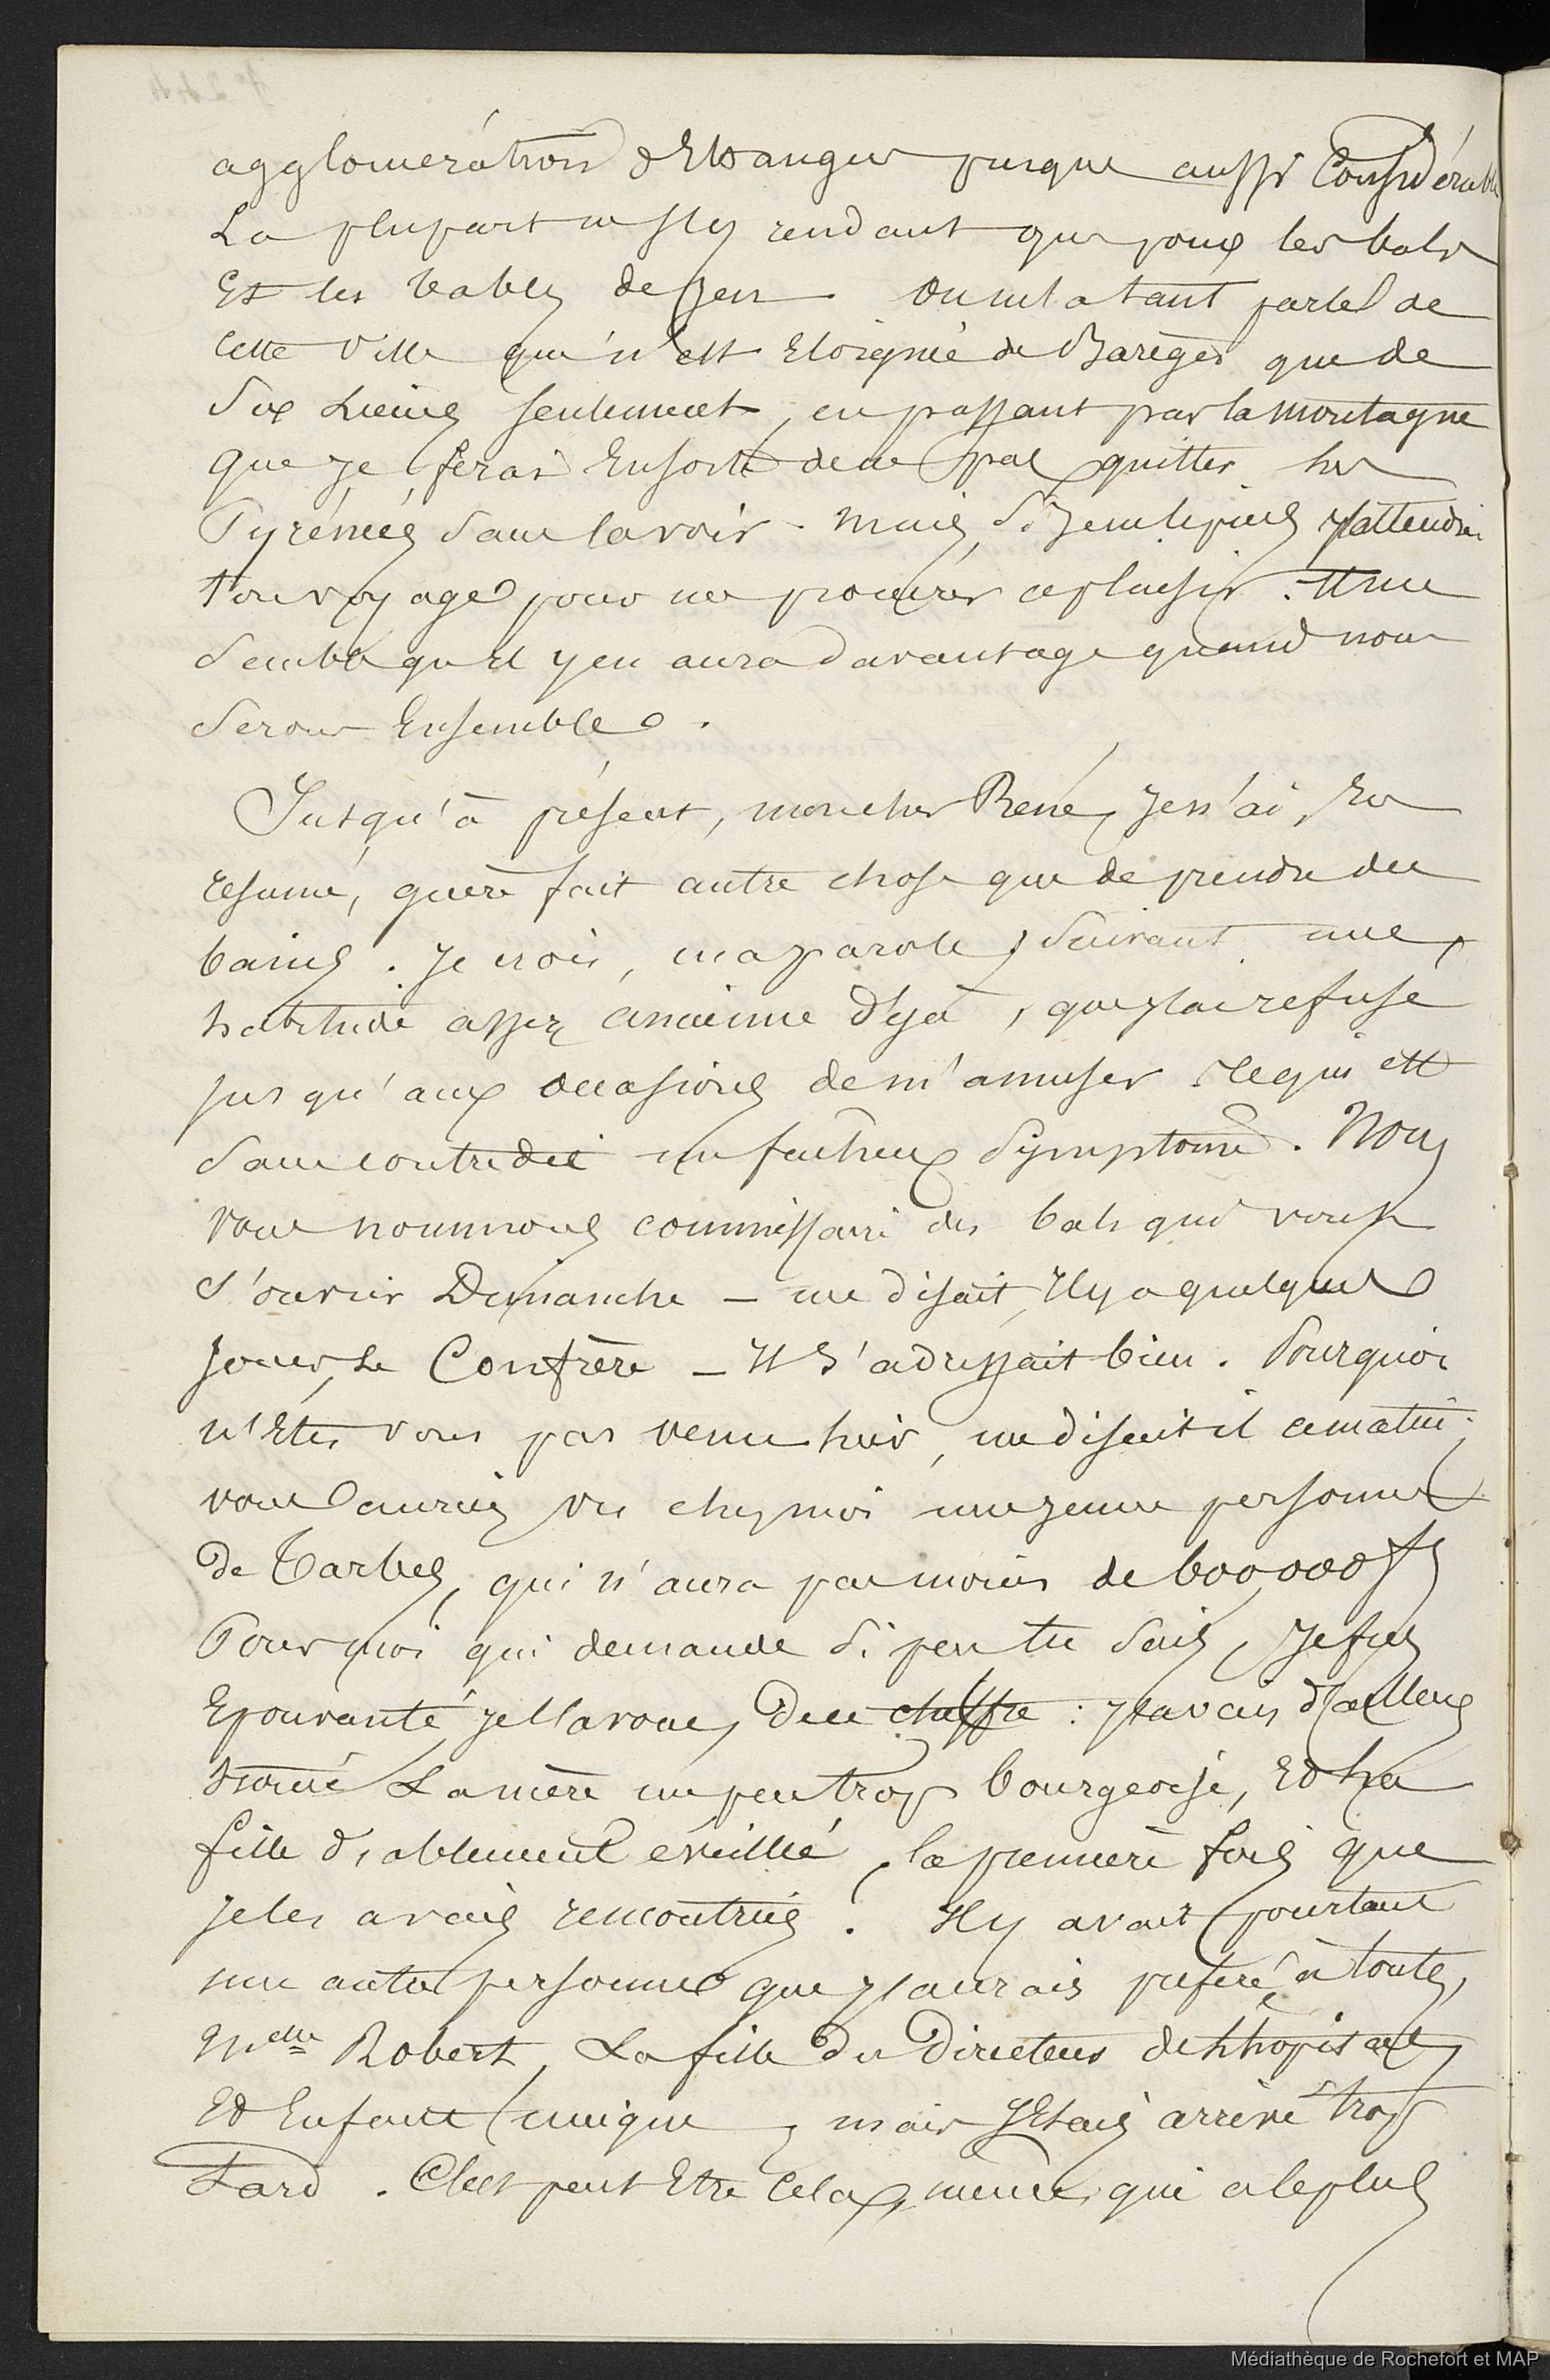 agglomération d'Etrangers presque aussi Considérable
La plupart ne s'y rendant que pour les bals
Et les tables de jeu. On m'a tant parlé de
Cette Ville qui n'est Eloignée de Barèges que de
Six Lieues seulement, en passant par la montagne
que je ferai Ensorte de ne pas quitter les
Pyrénées sans la voir. Mais, si je puis j'attendrai
ton voyage pour me procurer ce plaisir. Il me
semble qu'il y en aura davantage quand nous
serons Ensemble.
Jusqu'à présent, mon cher René, je n'ai, En
résumé, guère fait autre chose que de prendre des
bains. Je crois, ma parole, suivant une
habitude assez ancienne déjà, que j'ai refusé
jusqu'aux occasions de m'amuser. Ce qui est
sans contredit un fâcheux symptôme. Nous
vous nommons commissaire des bals qui vont
s'ouvrir Dimanche – me disait, Il y a quelques
jours, Le Confrère – Il s'adressait bien. Pourquoi
n'Etes vous pas venu hier, me disait il ce matin;
vous auriez vu chez moi une jeune personne
de Tarbes, qui n'aura pas moins de 600,000 f
Pour moi qui demande si peu tu sais, Je fus
Epouvanté, je l'avoue, de ce chiffre: j'avais d'ailleurs
trouvé La mère un peu trop bourgeoise, Et La
fille diablement éveillée, la première fois que
je les avais rencontrées. Il y avait pourtant
une autre personne que j'aurais préféré à toutes,
Melle Robert, La fille du Directeur de l'hôpital,
Et Enfant unique, mais J'Etais arrivé trop
Tard. C'est peut Etre Cela même, qui a le plus
Médiathèque de Rochefort et MAP